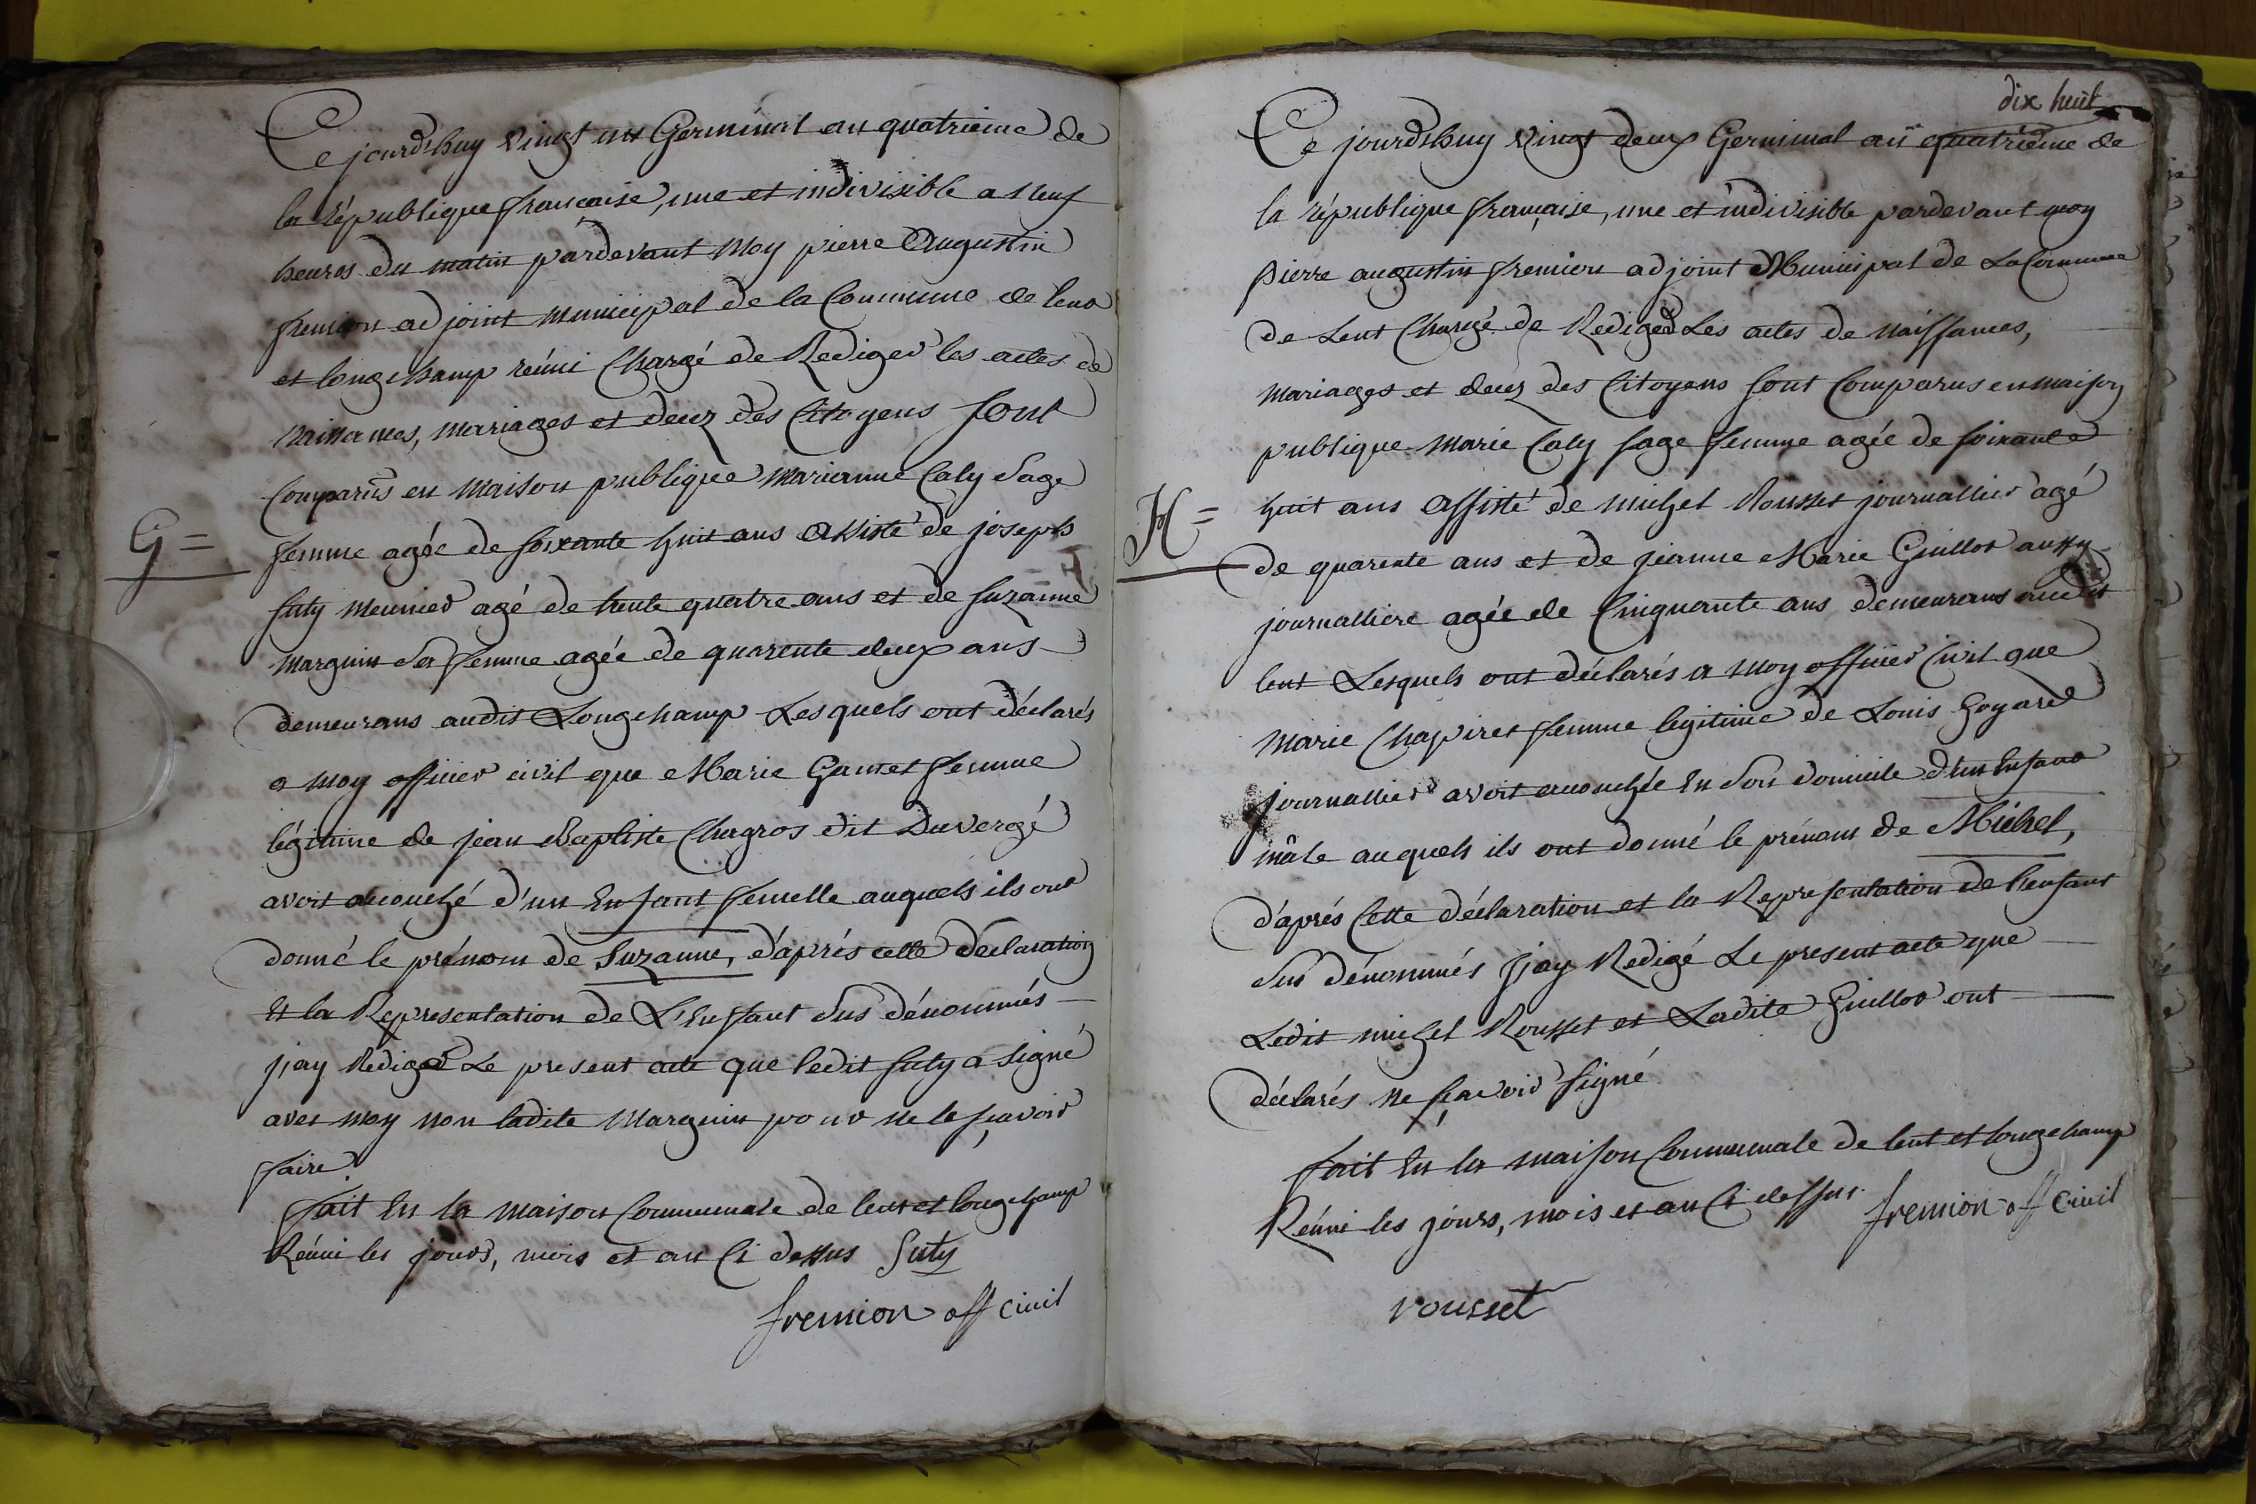 Ce jourd'huy vingt un Germinal an quatrieme de
la République française, une et indivisible a neuf
heures du matin pardevant moy pierre Augustin
fremion adjoint municipal de la Commune de lent
et longchamp réuni Chargé de Rediger les actes de
naissances, mariages et decez des Citoyens sont
Comparus en maison publique marianne Caly sage
G=
femme agée de soixante huit ans assisté de joseph
suty meunier agé de trente quatre ans et de suzanne
marguin sa femme agée de quarente deux ans
demeurans audit Longchamp Lesquels ont déclarés
a moy officier civil que Marie Gamet femme
légitime de jean Baptiste Chagros dit Duvergé
avoit acouché d'un Enfant femelle auquels ils ont
donné le prénom de Suzanne, d'après cette déclaration
et la Representation de L'Enfant sus dénommés
j'jay Rediger Le present acte que ledit suty a signé
avec moy non ladite Marguin pour ne le sçavoir
faire.
fait En la maison Communale de lent et longchamp
Réuni les jours, mois et an Ci dessus Suty
fremion off civil
dix huit
Ce jourd'huy vingt deux Germinal an quatriême de
la république française, une et indivisible pardevant moy
pierre augustin fremion adjoint Municipal de La Commune
de Lent Chargé de Rediger Les actes de naissances,
mariages et decez des Citoyens sont Comparus en maison
publique marie Caly sage femme agée de soixante
H=
huit ans assisté de michel Rousset journallier agé
de quarente ans et de jeanne Marie Guillot aussy
journalliere agée de Cinquante ans demeurans audit
lent Lesquels ont déclarés a moy officier Civil que
marie Chapiret femme legitime de Louis Goyard
journallier avoit acouchée En son domicile d'un Enfant
mâle auquels ils ont donné le prénom de Michel,
d'aprés Cette déclaration et la Representation de l'enfant
sus dénommés j'jay Redigé Le present acte que
Ledit michel Rousset et Ladite Guillot ont
déclarés ne sçavoir signé
fait En la maison Communale de lent et longchamp
Réuni les jours, mois et an Ci dessus. fremion off civil
rousset